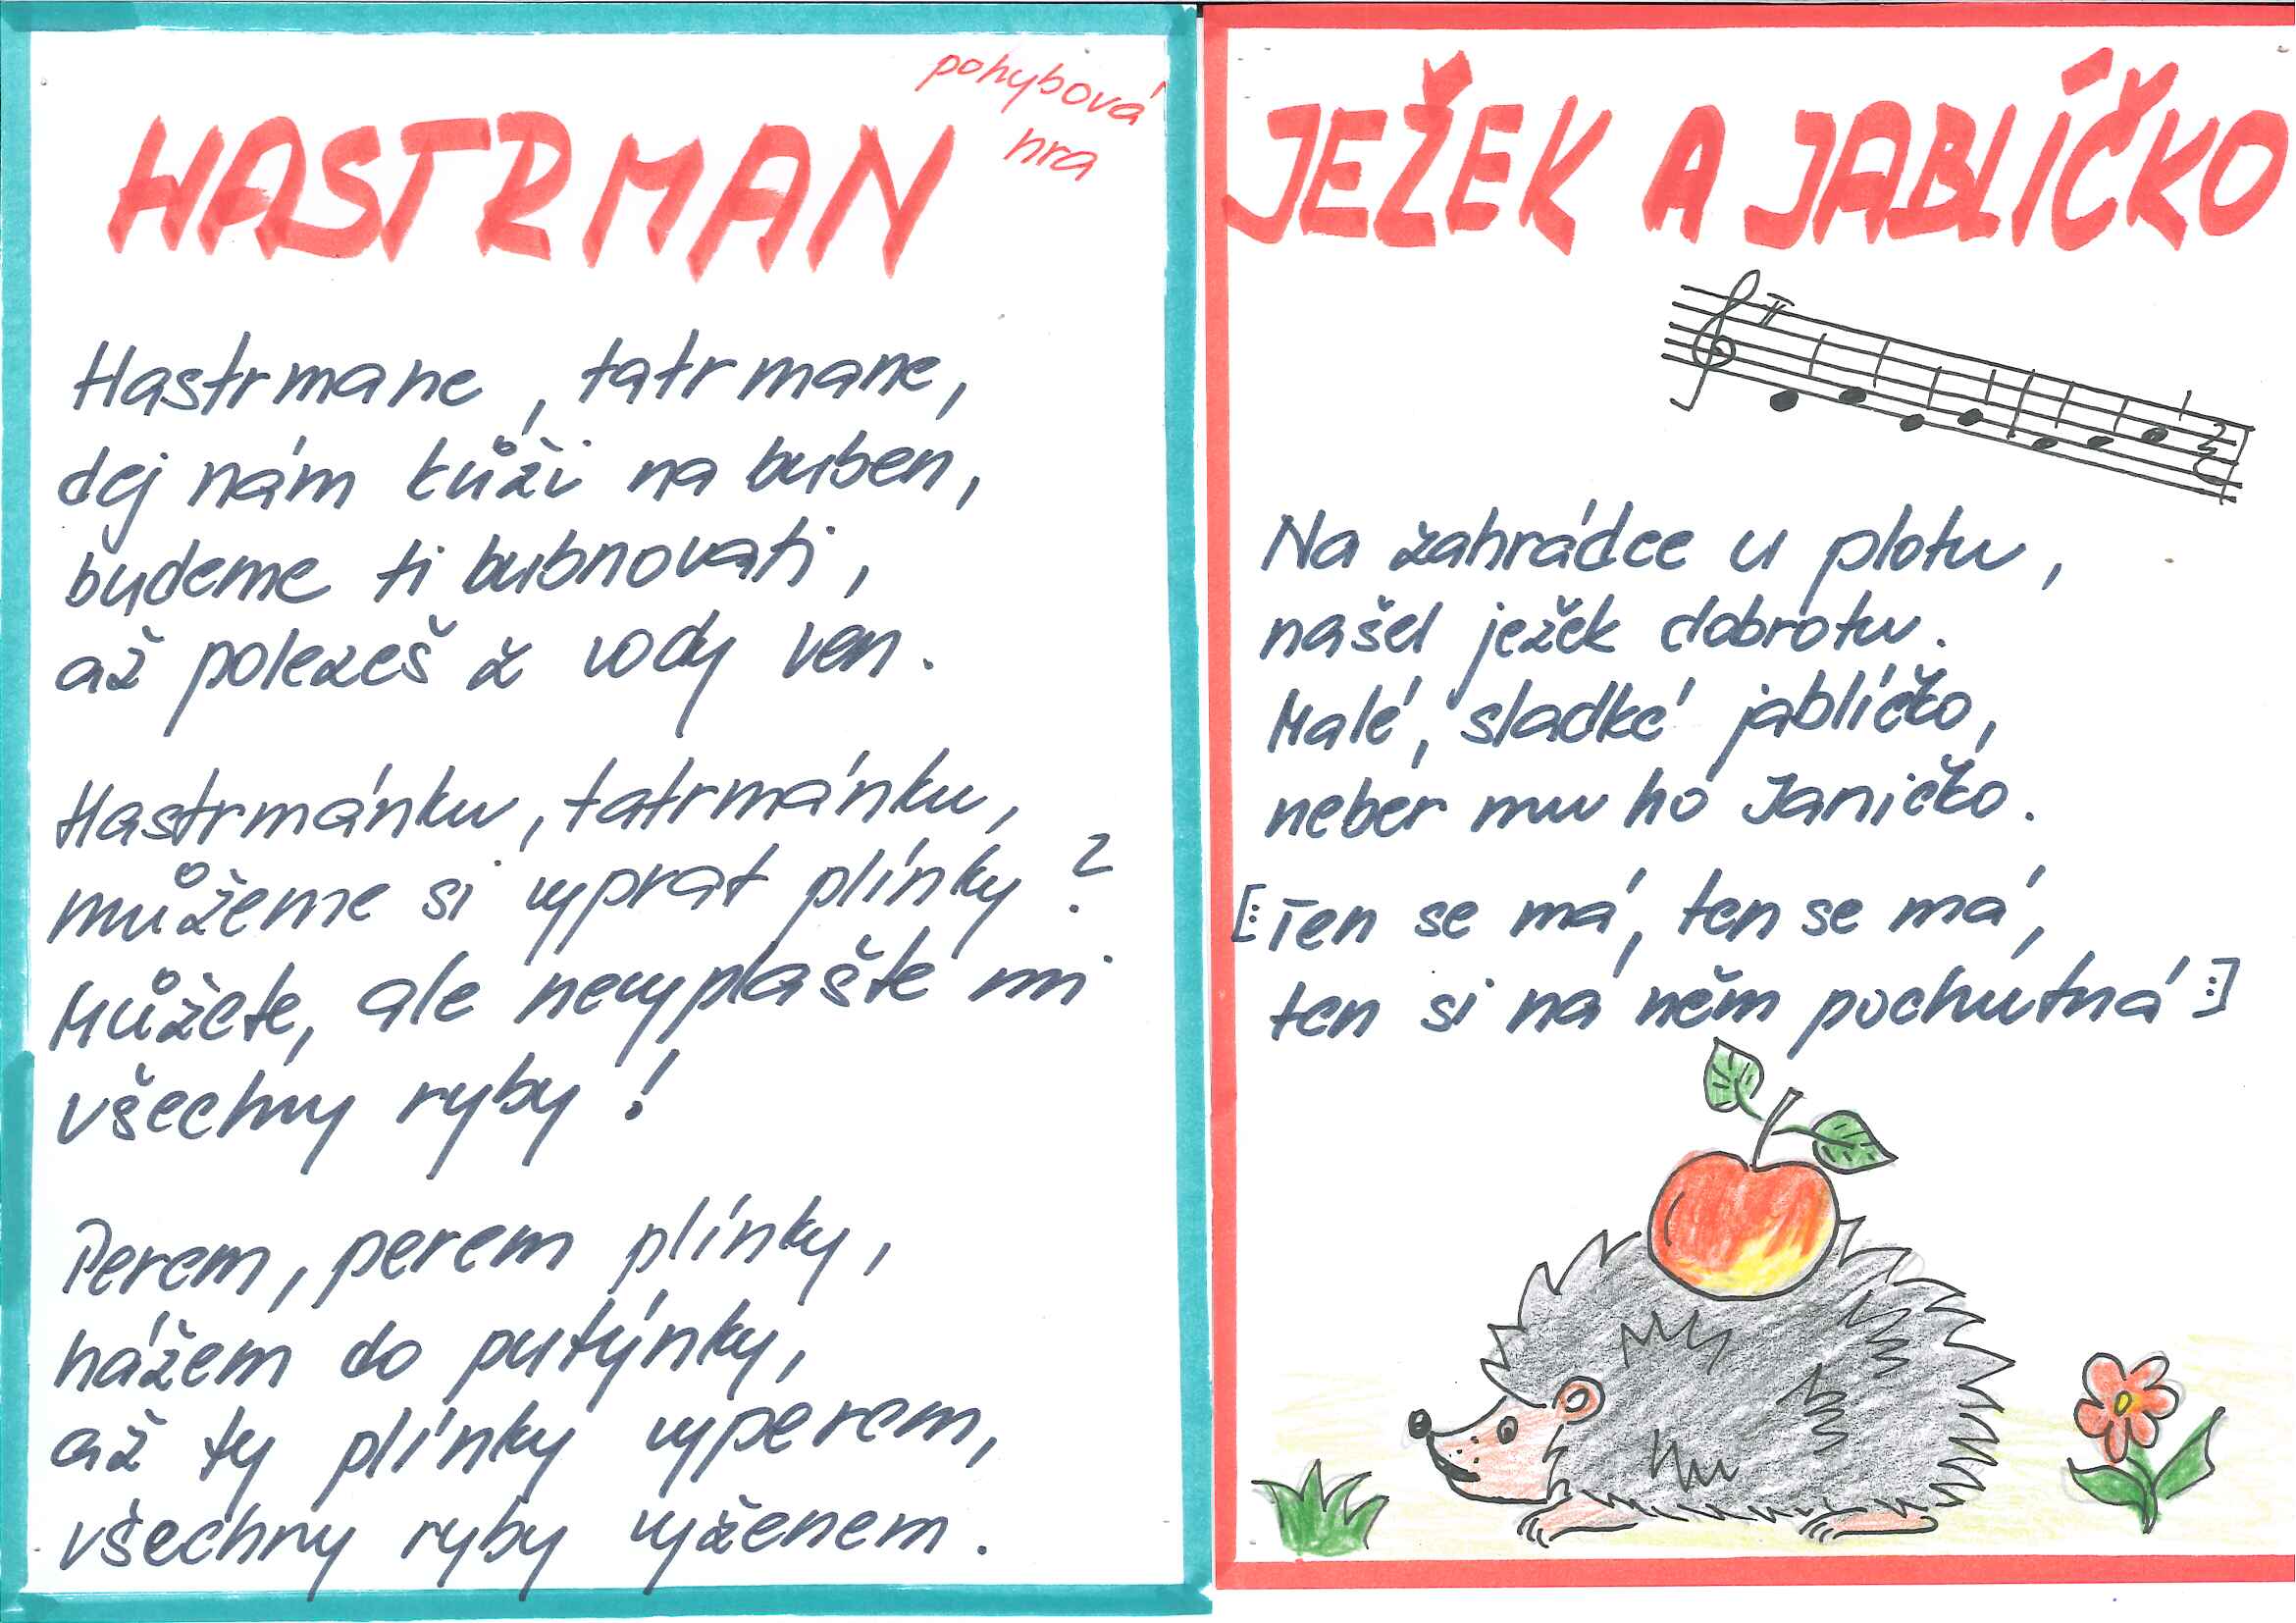 HASTRMAN
pohybová
hra
Hastrmane, tatrmane,
dej nám kůži na buben,
budeme ti bubnovati,
až polezeš z vody ven.
Hastrmánku, tatrmánku,
můžeme si vyprat plínky?
Můžete, ale nevyplašte mi
všechny ryby!
Perem, perem plínky,
házem do putýnky,
až ty plínky vyperem,
všechny ryby vyženem.
JEŽEK A JABLÍČKO
Na zahrádce u plotu,
našel ježek dobrotu.
Malé, sladké jablíčko,
neber mu ho Janičko.
[:Ten se má, ten se má,
ten si na něm pochutná:]